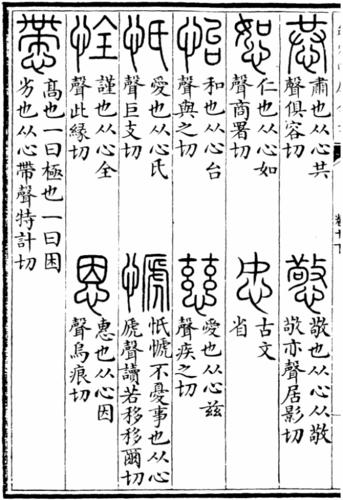 恭
肅也从心共
聲俱容切
憼
敬也从心从敬
敬亦聲居影切
恕
仁也从心如
聲商署切
古文
省
怡
和也从心台
聲與之切
慈
愛也从心兹
聲疾之切
忯
愛也从心氏
聲巨支切
⿰忄虒
忯⿰忄虒不憂事也从心
虒聲讀若移移爾切
恮
謹也从心全
聲此緣切
恩
惠也从心因
聲烏痕切
㦅
高也一曰極也一曰困
劣也从心帶聲特計切